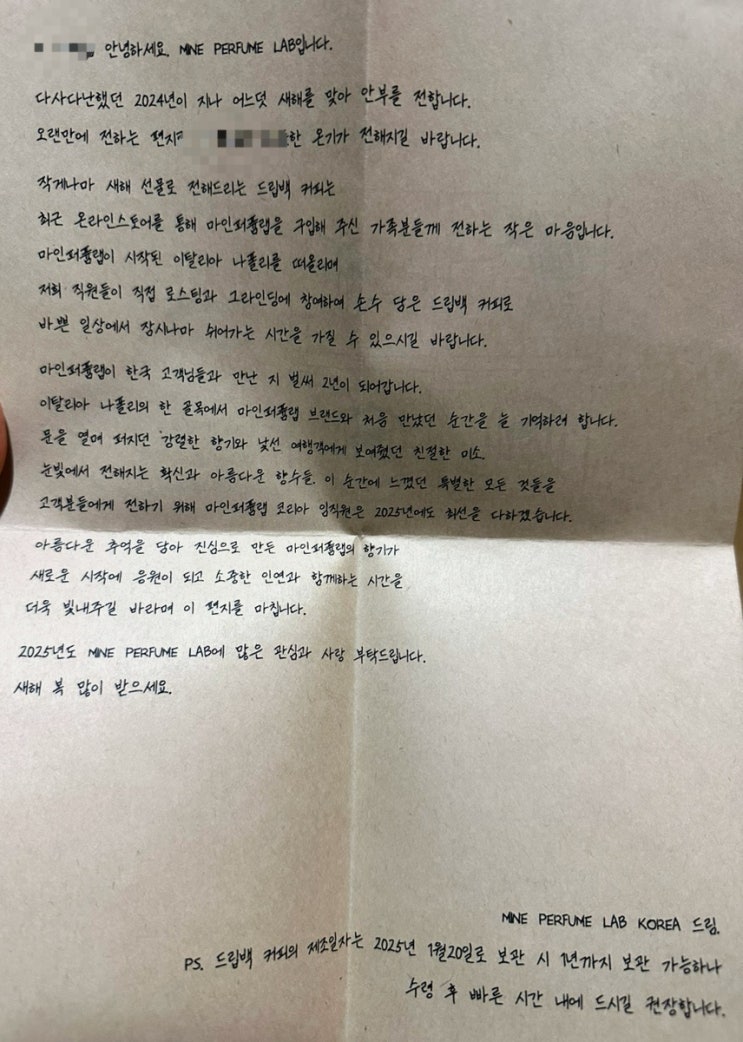 안녕하세요. MINE PERFUME LAB입니다.
다사다난했던 2024년이 지나 어느덧 새해를 맞아 안부를 전합니다.
오랜만에 전하는 편지 온기가 전해지길 바랍니다.
작게나마 새해 선물로 전해드리는 드립백 커피는
최근 온라인스토어를 통해 마인퍼퓸랩을 구입해 주신 가족분들께 전하는 작은 마음입니다.
마인퍼퓸랩이 시작된 이탈리아 나폴리를 떠올리며
저희 직원들이 직접 로스팅과 그라인딩에 참여하여 손수 담은 드립백 커피로
바쁜 일상에서 잠시나마 쉬어가는 시간을 가질 수 있으시길 바랍니다.
마인퍼퓸랩이 한국 고객님들과 만난 지 벌써 2년이 되어갑니다.
이탈리아 나폴리의 한 골목에서 마인퍼퓸랩 브랜드와 처음 만났던 순간을 늘 기억하려 합니다.
문을 열며 퍼지던 강렬한 향기와 낯선 여행객에게 보여줬던 친절한 미소.
눈빛에서 전해지는 확신과 아름다운 향수들. 이 순간에 느꼈던 특별한 모든 것들을
고객분들에게 전하기 위해 마인퍼퓸랩 코리아 임직원은 2025년에도 최선을 다하겠습니다.
아름다운 추억을 담아 진심으로 만든 마인퍼퓸랩의 향기가
새로운 시작에 응원이 되고 소중한 인연과 함께하는 시간을
더욱 빛내주길 바라며 이 편지를 마칩니다.
2025년도 MINE PERFUME LAB에 많은 관심과 사랑 부탁드립니다.
새해 복 많이 받으세요.
MINE PERFUME LAB KOREA 드림.
PS. 드립백 커피의 제조일자는 2025년 1월20일로 보관 시 1년까지 보관 가능하나
수령 후 빠른 시간 내에 드시길 권장합니다.